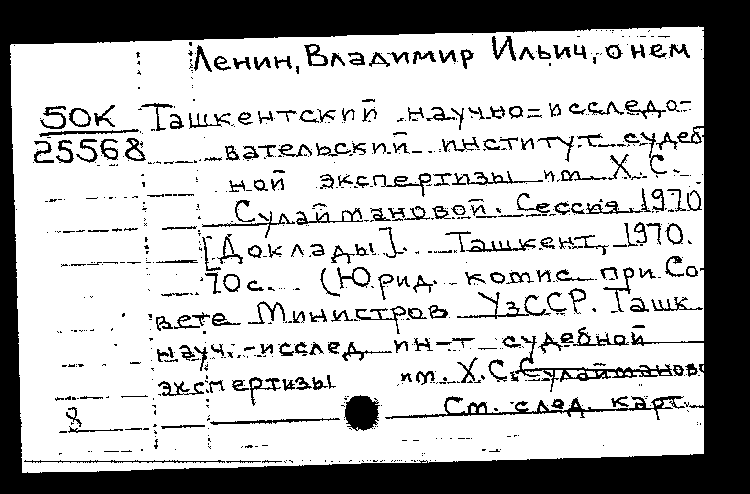 Ленин, Владимир Ильич, о нем
50К Ташкентский научно=исследо=
25568 вательский институт судеб
ной экспертизы им. Х.С.
Сулаймановой. Сессия. 1970
[Доклады]. Ташкент, 1970.
70с. (Юрид. комис. при Со-
вете Министров УзССР. Ташк
науч.-исслед. ин-т судебной
экспертизы им. Х.С. Сулайманов
См. след. карт.
8